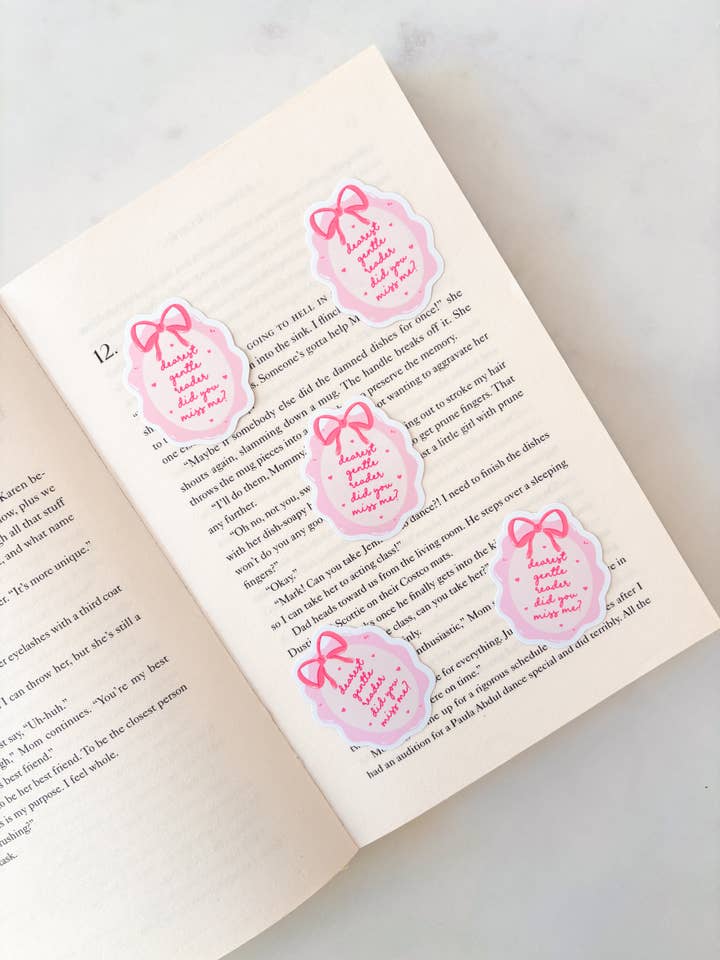 Karen be-
now, plus we
gh all that stuff
, and what name
er. “It’s more unique.”
er eyelashes with a third coat
I can throw her, but she’s still a
st say. “Uh-huh.”
gh.” Mom continues. “You’re my best
s best friend.”
o be her best friend. To be the closest person
s is my purpose. I feel whole.
rushing?”
ask.
12.
GOING TO HELL IN
into the sink. I flinc
s. Someone’s gotta help M
“Maybe if somebody else did the damned dishes for once!” she
shouts again, slamming down a mug. The handle breaks off it. She
throws the mug pieces into a preserve the memory.
“I’ll do them, Mommy ot wanting to aggravate her
any further.
“Oh no, not you, sw ng out to stroke my hair
with her dish-soapy get prune fingers. That
won’t do you any goo st a little girl with prune
fingers?”
“Okay.”
“Mark! Can you take Jenn dance?! I need to finish the dishes
so I can take her to acting class!”
Dad heads toward us from the living room. He steps over a sleeping
Dusti Scottie on their Costco mats.
ks once he finally gets into the k
class, can you take her?” Mom
nly.
nthusiastic.” Mom
e for everything. Ju
ere on time.”
Mo me up for a rigorous schedule es after I
had an audition for a Paula Abdul dance special and did terribly. All the
dearest
gentle
reader
did you
miss me?
dearest
gentle
reader
did you
miss me?
dearest
gentle
reader
did you
miss me?
dearest
gentle
reader
did you
miss me?
dearest
gentle
reader
did you
miss me?